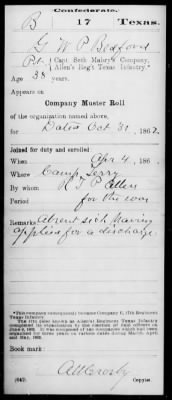 Confederate.
B 17 Texas.
G W P Bedford
Pvt. Capt. Seth Mabry's Company,
Allen's Reg't Texas Infantry.*
Age 38 years.
Appears on
Company Muster Roll
of the organization named above,
for Dates Oct 31, 1862.
Joined for duty and enrolled:
When Apr 4, 186
Where Camp Terry
By whom R T P Allen
Period for the war
Remarks: Absent sick Having
applied for a discharge
*This company subsequently became Company B, 17th Regiment
Texas Infantry.
Book mark:
(642) Copyist.